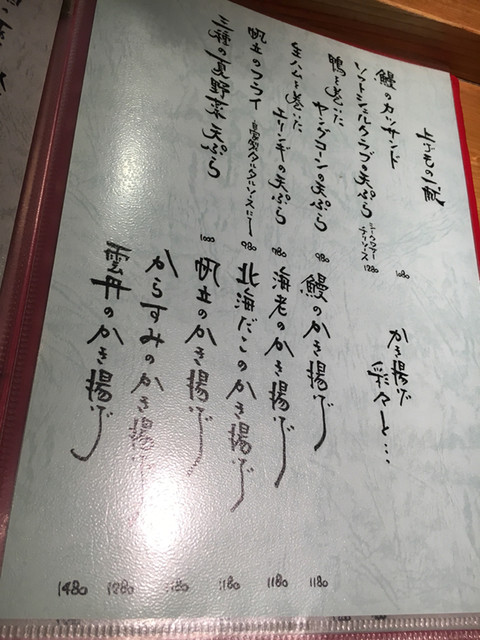 上げもの一献
鰻のカツサンド 1080
ソフトシェルクラブの天ぷら スイートチリソース 1280
鴨を巻いた
ヤングコーンの天ぷら 980
生ハムを巻いた
エリンギの天ぷら 780
帆立のフライ 自家製タルタルソースにて 980
三種の夏野菜天ぷら 1000
かき揚げ
彩々と…
鰻のかき揚げ 1180
海老のかき揚げ 1180
北海だこのかき揚げ 1180
帆立のかき揚げ 1180
からすみのかき揚げ 1280
雲丹のかき揚げ 1480